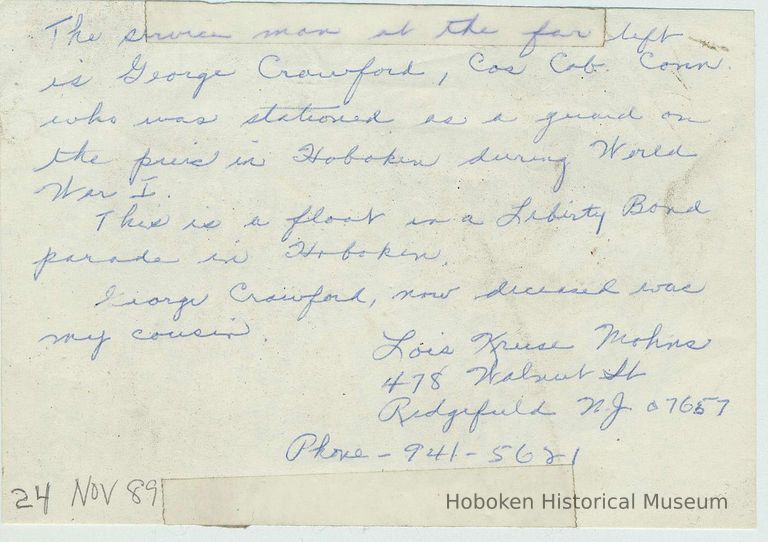 The service man at the far left
is George Crawford, Cos Cob. Conn.
who was stationed as a guard on
the piers in Hoboken during World
War I.
This is a float in a Liberty Bond
parade in Hoboken.
George Crawford, now deceased was
my cousin.
Lois Kruse Mohns
478 Walnut St
Ridgefield N.J. 07657
Phone - 941-5621
24 NOV 89
Hoboken Historical Museum